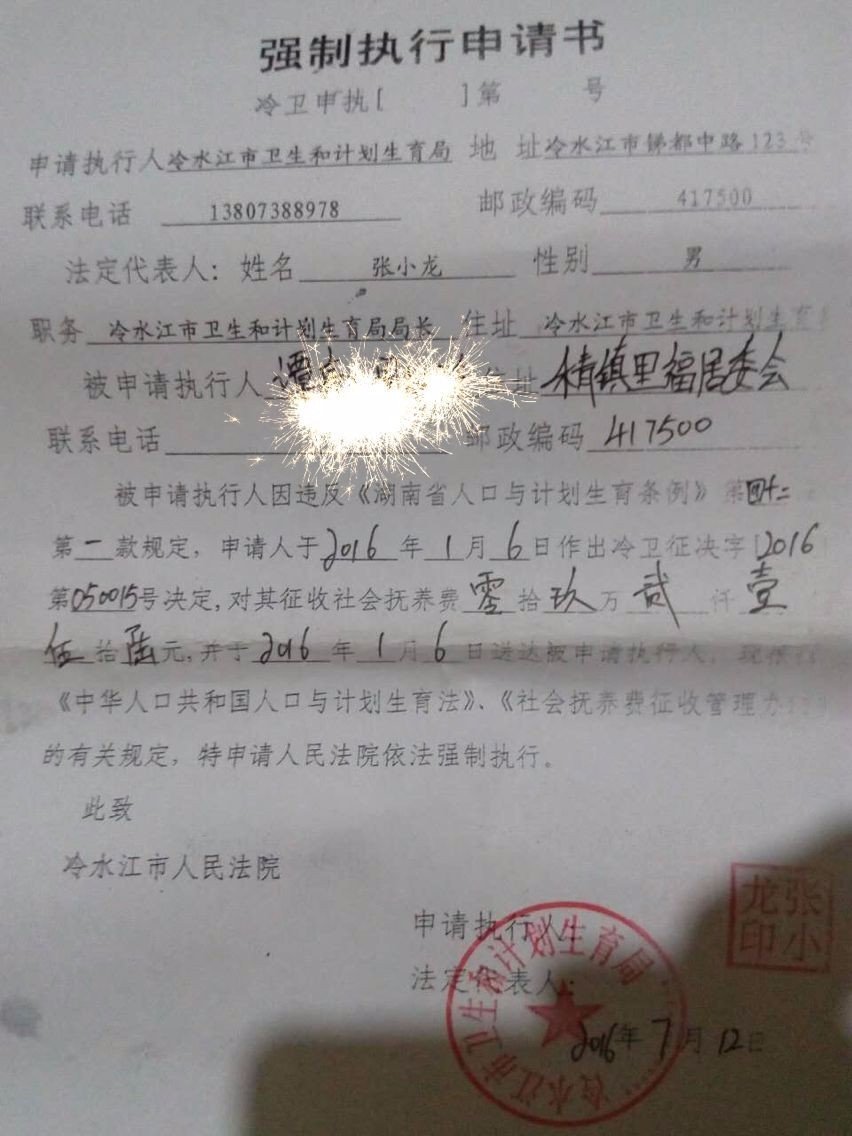 强制执行申请书
冷卫申执[ ]第 号
申请执行人冷水江市卫生和计划生育局 地 址冷水江市锑都中路123号
联系电话 13807388978 邮政编码 417500
法定代表人：姓名 张小龙 性别 男
职务 冷水江市卫生和计划生育局局长 住址 冷水江市卫生和计划生育
被申请执行人谭 住址 镇里福居委会
联系电话 邮政编码 417500
被申请执行人因违反《湖南省人口与计划生育条例》第四十二
第一款规定，申请人于2016年1月6日作出冷卫征决字[2016
第050015号决定,对其征收社会抚养费零拾玖万贰仟壹
伍拾陆元,并于2016年1月6日送达被申请执行人，现依
《中华人口共和国人口与计划生育法》、《社会抚养费征收管理办
的有关规定，特申请人民法院依法强制执行。
此致
冷水江市人民法院
申请执行人：
法定代表人：
2016年7月12日
冷水江市卫生和计划生育局
张小龙印